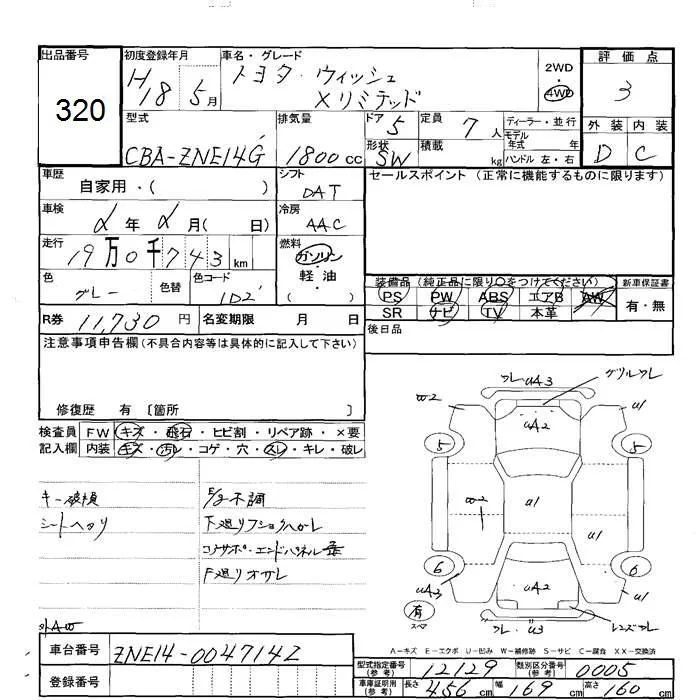 出品番号
320
初度登録年月
H18 5月
車名・グレード
トヨタ・ウィッシュ
Xリミテッド
2WD
・
4WD
評価点
3
外装 内装
D C
型式
CBA-ZNE14G
排気量
1800cc
ドア 5
形状 SW
定員 7人
積載 kg
ディーラー・並行
モデル年式 年
ハンドル 左・右
車歴
自家用・( )
シフト
DAT
セールスポイント (正常に機能するものに限ります)
車検
2年2月( 日)
冷房
AAC
走行
19万0千743km
燃料
ガソリン
・
軽油
( )
色
グレー
色替
色コード
1D2
装備品 (純正品に限り○をつけてください)
PS PW ABS エアB AW
SR ナビ TV 本革
新車保証書
有・無
R券 11,730円
名変期限 月 日
後日品
注意事項申告欄 (不具合内容等は具体的に記入して下さい)
修復歴 有 〔箇所 〕
検査員
記入欄
FW キズ・飛石・ヒビ割・リペア跡・×要
内装 キズ・汚レ・コゲ・穴・スレ・キレ・破レ
キー破損
シートヘタリ
E/g不調
下廻りフショクハガレ
コアサポ・エンドパネル
下廻りオサレ
外AW
ワレ uA3
グリルワレ
w2
u1
uA2
5
5
w2
u1
u1
6
6
uA3
uA2
u1
有
スペア
ワレ u3
レンズワレ
A-キズ E-エクボ U-凹み W-補修跡 S-サビ C-腐食 XX-交換済
車台番号
ZNE14-0047142
登録番号
型式指定番号(参考)
12129
類別区分番号(参考)
0005
車庫証明用(参考)
長さ 456cm
幅 169cm
高さ 160cm